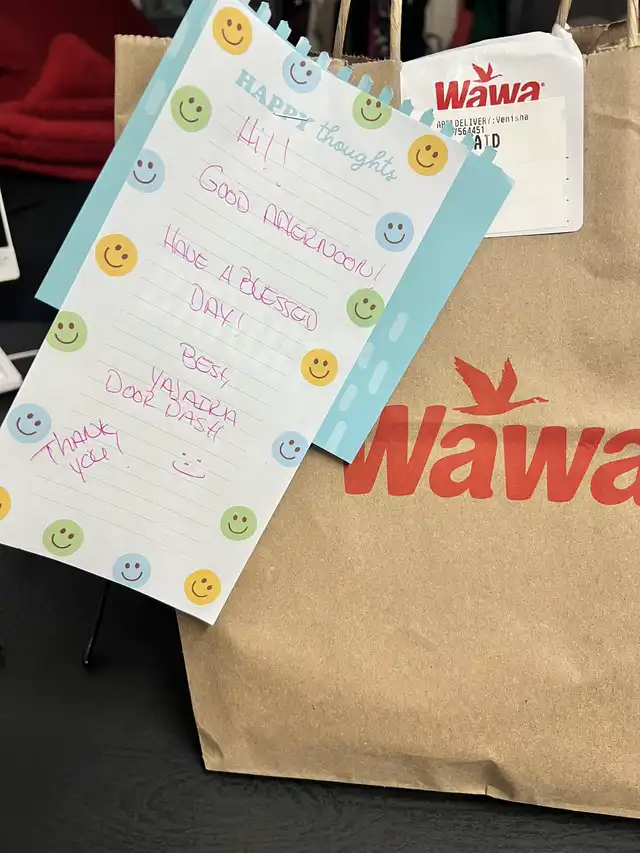 HAPPY thoughts
Hi!!
GOOD AFTERNOON!
HAVE A BLESSED
DAY!
BEST,
YAJAIRA
DOOR DASH
THANK
YOU!
Wawa
DELIVERY: Venisha
7564451
AID
Wawa